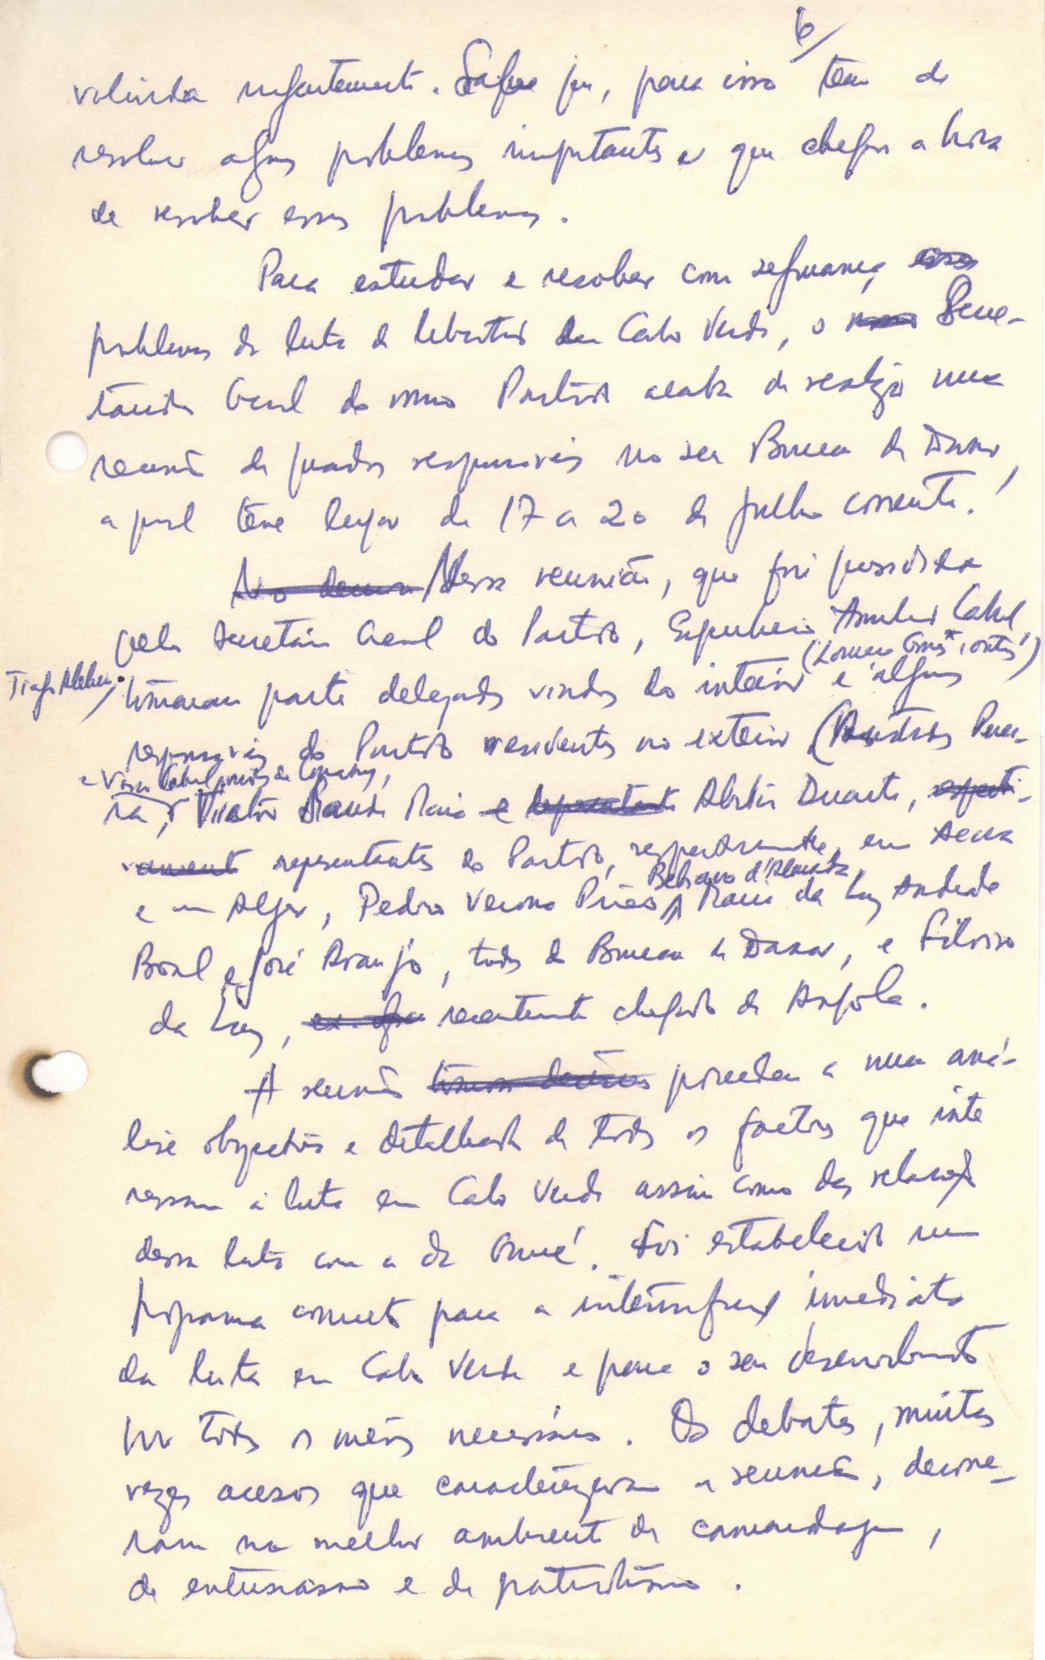 6/
. Sabe que, para isso tem de
resolver alguns problemas importantes e que chegou a hora
de resolver esses problemas.
Para estudar e resolver com segurança, esses
problemas da luta de libertação em Cabo Verde, o nosso Secre-
tariado Geral do nosso Partido acaba de realizar uma
reunião de quadros responsáveis no seu Bureau de Dakar,
a qual teve lugar de 17 a 20 de Julho corrente.
No decurso Nessa reunião, que foi presidida
pelo Secretário Geral do Partido, Engenheiro Amilcar Cabral,
tomaram parte delegados vindos do interior e alguns
responsáveis do Partido residentes no exterior (Perei-
ra, Maria e representante Abílio Duarte, respecti-
vamente representantes do Partido, respectivamente, em Accra
e em Alger, Pedro Verona Pires, Maria da Luz Andrade
Boal e José Araújo, todos do Bureau de Dakar, e Silvino
da Luz, recentemente chegado de Angola.
A reunião procedeu a uma aná-
lise objectiva e detalhada de todos os factores que inte
ressam à luta em Cabo Verde assim como das relações
dessa luta com a da Guiné. Foi estabelecido um
programa concreto para a intensificação imediata
da luta em Cabo Verde e para o seu desenvolvimento
por todos os meios necessários. Os debates, muitas
vezes acesos que caracterizaram a reunião, decorre-
ram no melhor ambiente de camaradagem,
de entusiasmo e de patriotismo.